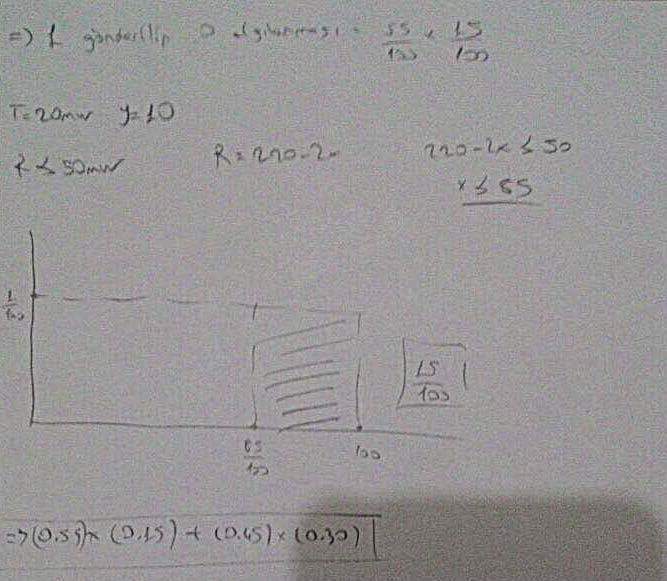 => 1 gönderilip 0 algılanması = 55/100 x 15/100
T=20mw y=10
R ≤ 50mw R = 220-2x 220-2x ≤ 50
x ≤ 85
1/100
15/100
85/100 100
=> (0.55)x (0.15) + (0.45)x (0.30)